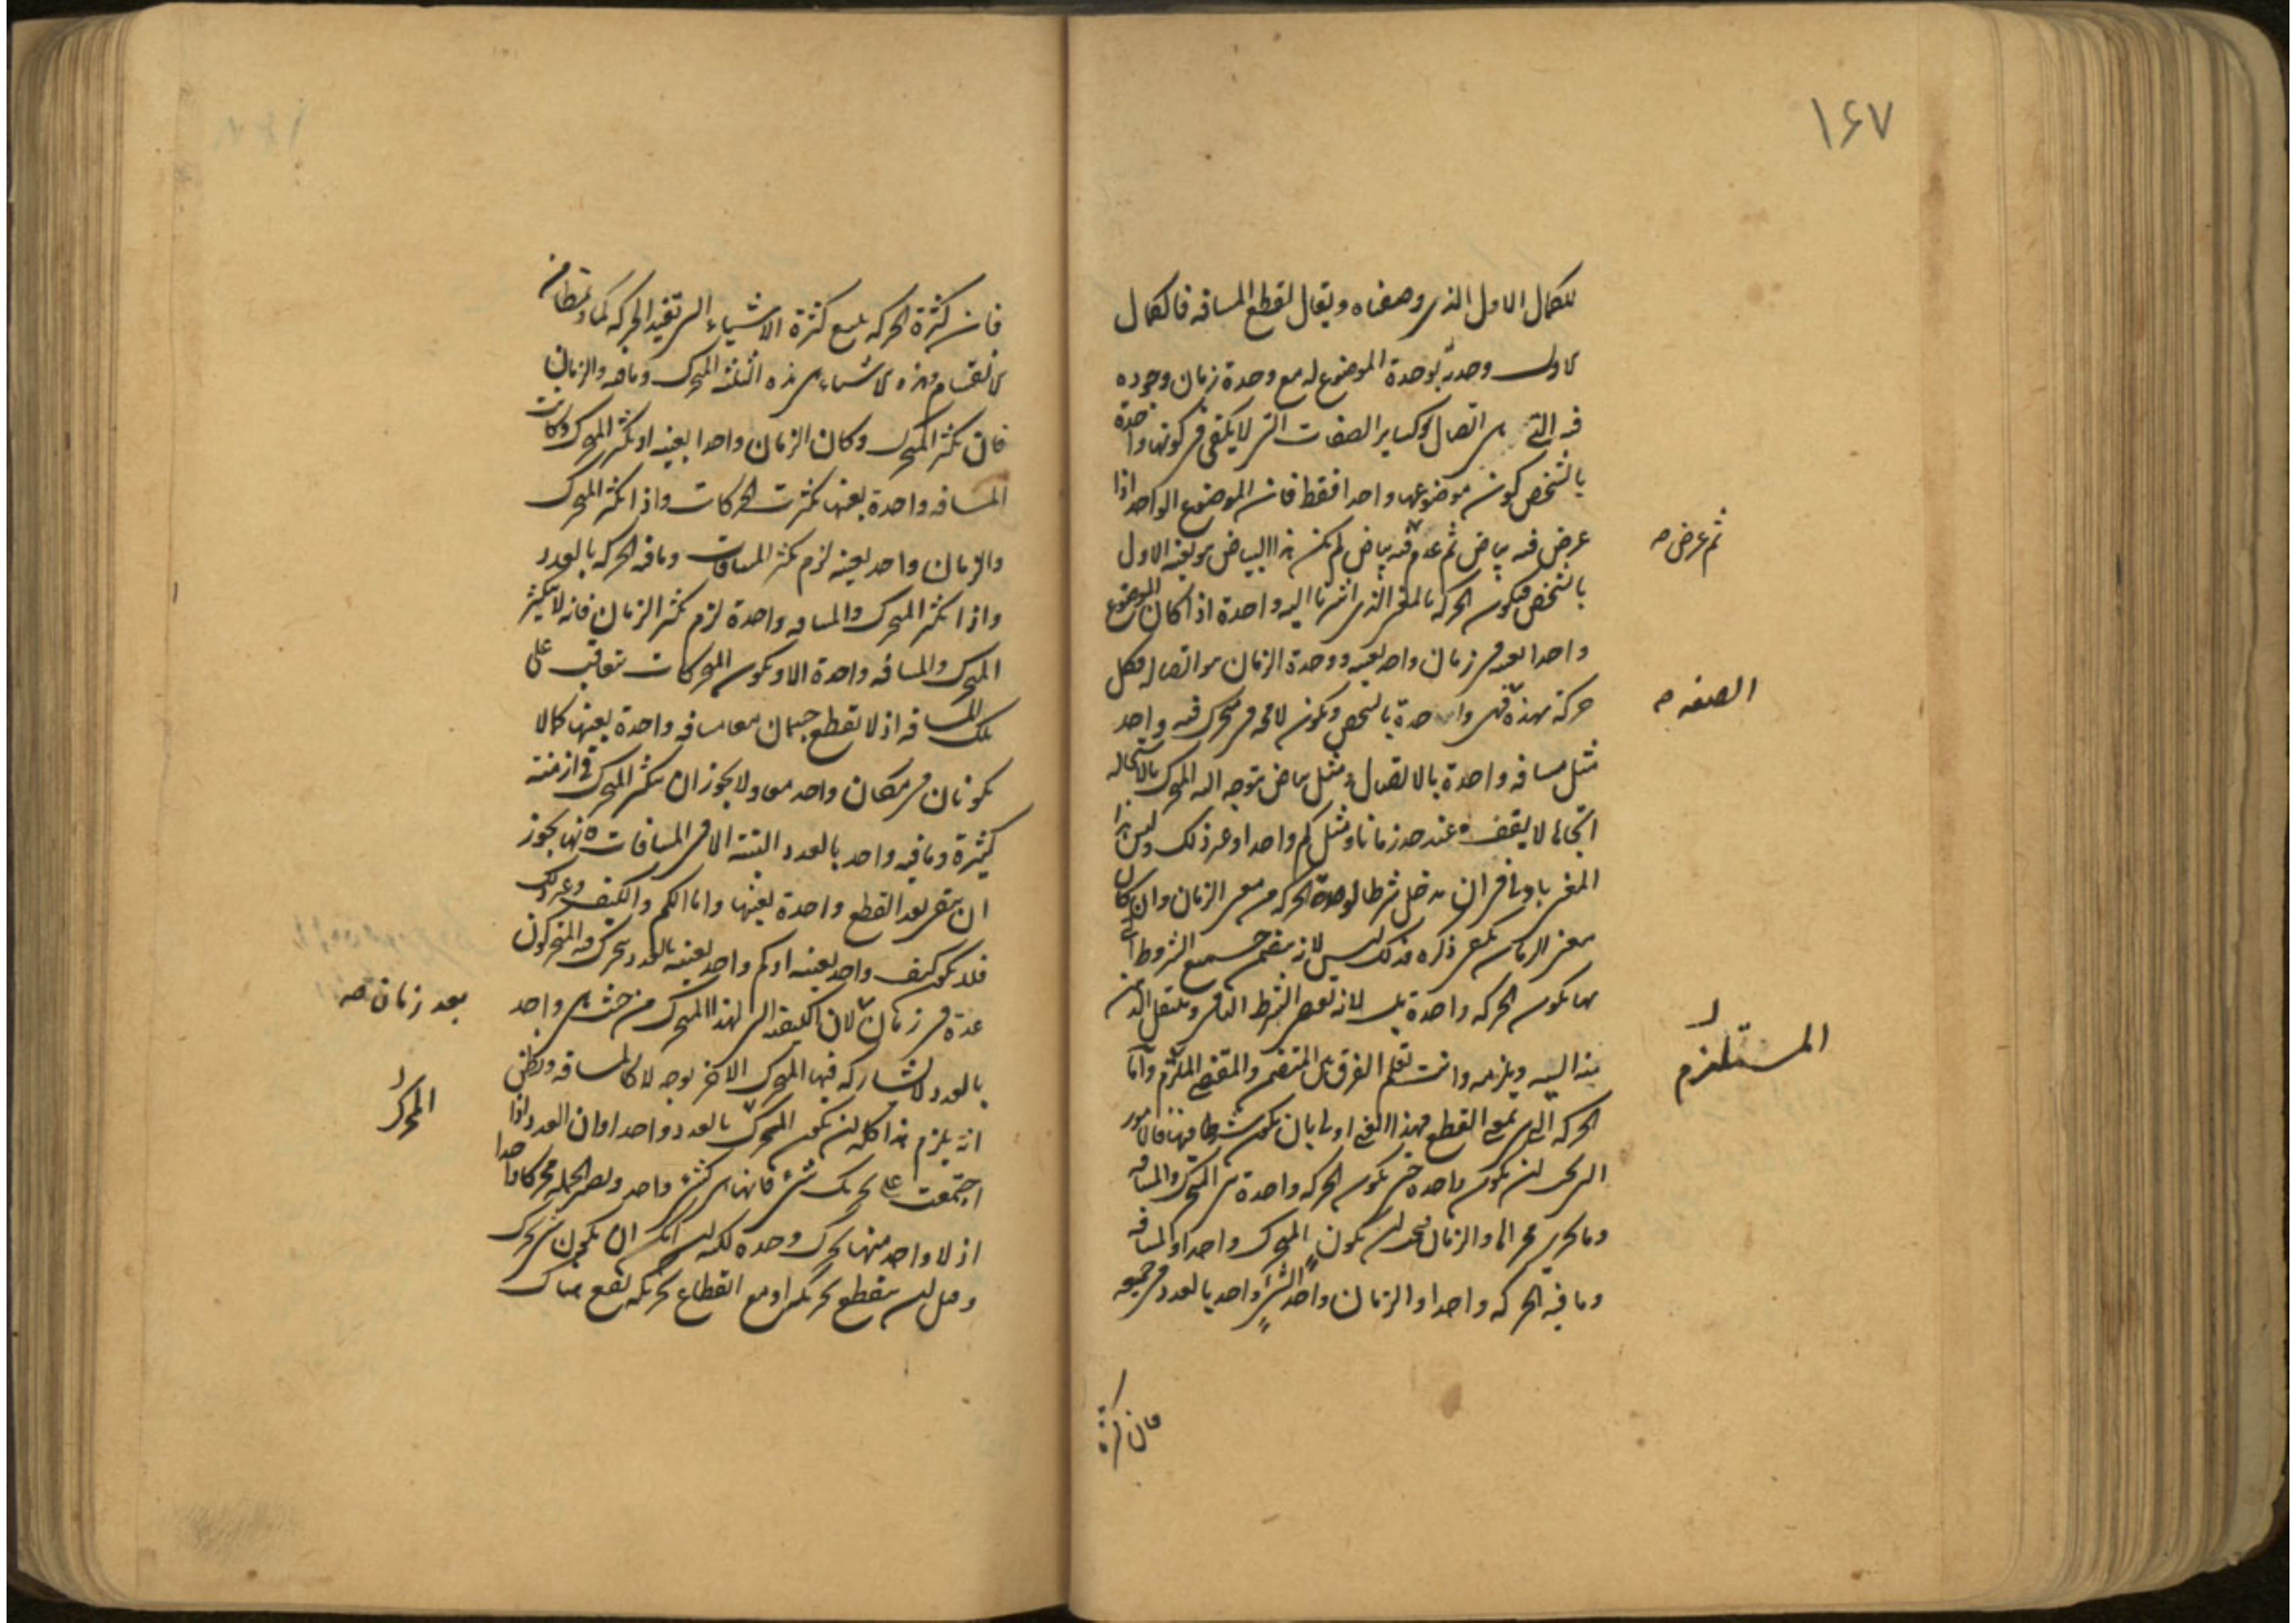 ١۶٧
للكمال الاول الذي وصفناه ويقال لقطع المسافه فالكمال
الاول وحدته بوحدة الموضوع له مع وحدة زمان وجوده
فيه التي هي اتصاله كساير الصفات التي لا يكفي في كونها واحدة
بالشخص كون موضوعها واحدا فقط فان الموضوع الواحد اذا
عرض فيه بياض ثم عدم فيه بياض لم يكن هذا البياض هو بعينه الاول
ثم عرض صح
بالشخص فيكون الحركه بالمعنى الذي اشرنا اليه واحدة اذا كان الموضوع
واحدا بعينه في زمان واحد بعينه ووحدة الزمان هو اتصاله فكل
حركة بهذه فهي واحدة بالشخص ويكون لا محه في متحرك فيه واحد
الصفه صح
مثل مسافه واحدة بالاتصال او مثل بياض يتوجه اليه المتحرك بالاستحاله
اتجاها لا يقف عند حد زمانا او مثل كم واحد او غير ذلك وليس هذا
المعنى باوفي ان يدخل شرطا لوحدة الحركه من معنى الزمان وان كان
معنى الزمان يكفي ذكره فذلك ليس لانه يتضمن جميع الشروط التي
بها يكون الحركه واحدة بل لانه بعض الشرط الثاني وينتقل الذهن
منه اليه ويلزمه وانت تعلم الفرق بين المتضمن والمقتضي الملزم واما
المستلزم
الحركه التي بمعنى القطع فهذا المعنى اولى بان يكون شرطا فيها فالامور
التي يجب ان يكون واحده حتى يكون الحركه واحدة هي المتحرك والمسافه
وما يجري مجراها والزمان فيجب ان يكون المتحرك واحدا والمسافه
وما فيه الحركه واحدا والزمان واحد الشيء واحد بالعدد في جميعه
فان كثرة
فان كثرة الحركه يتبع كثرة الاشياء التي تفيد الحركه
الانقسام وهذه الاشياء هي هذه الثلثه المتحرك وما فيه والزمان
فان تكثر المتحرك وكان الزمان واحدا بعينه او تكثر المتحرك وكانت
المسافه واحدة بعينها تكثرت الحركات واذا تكثر المتحرك
والزمان واحد بعينه لزم تكثر المسافات وما فيه الحركه بالعدد
واذا تكثر المتحرك والمسافه واحدة لزم تكثر الزمان فانه لا يتكثر
المتحرك والمسافه واحدة الا ويكون المتحركات تتعاقب على
تلك المسافه اذ لا تقطع جسمان معا مسافه واحدة بعينها كما لا
يكونان في مكان واحد معا ولا يجوز ان يتكثر المتحرك في ازمنته
كثيرة وما فيه واحد بالعدد البته الا في المسافات فانها يجوز
ان يبقى بعد القطع واحدة بعينها واما الكم والكيف وغير ذلك
فلا يكون كيف واحد بعينه او كم واحد بعينه بالعدد يتحرك فيه المتحركون
عدة في زمان لان الكيفيه التي لهذا المتحرك من حيث هي واحد
بعد زمان صح
بالعدد لا يشاركه فيها المتحرك الاخر بوجه لا كالمسافه ونظن
انه يلزم هذا كله ان يكون المتحرك بالعدد واحدا وان العدد اذا
المحرك
اجتمعت على تحريك شيء فانها هي كشيء واحد ويصير الجمله محركا واحدا
اذ لا واحد منها يحرك وحده لكنه ليس يمكن ان يكون شيء يحرك
وقبل ان ينقطع تحريكه او مع انقطاع تحريكه يقع هناك